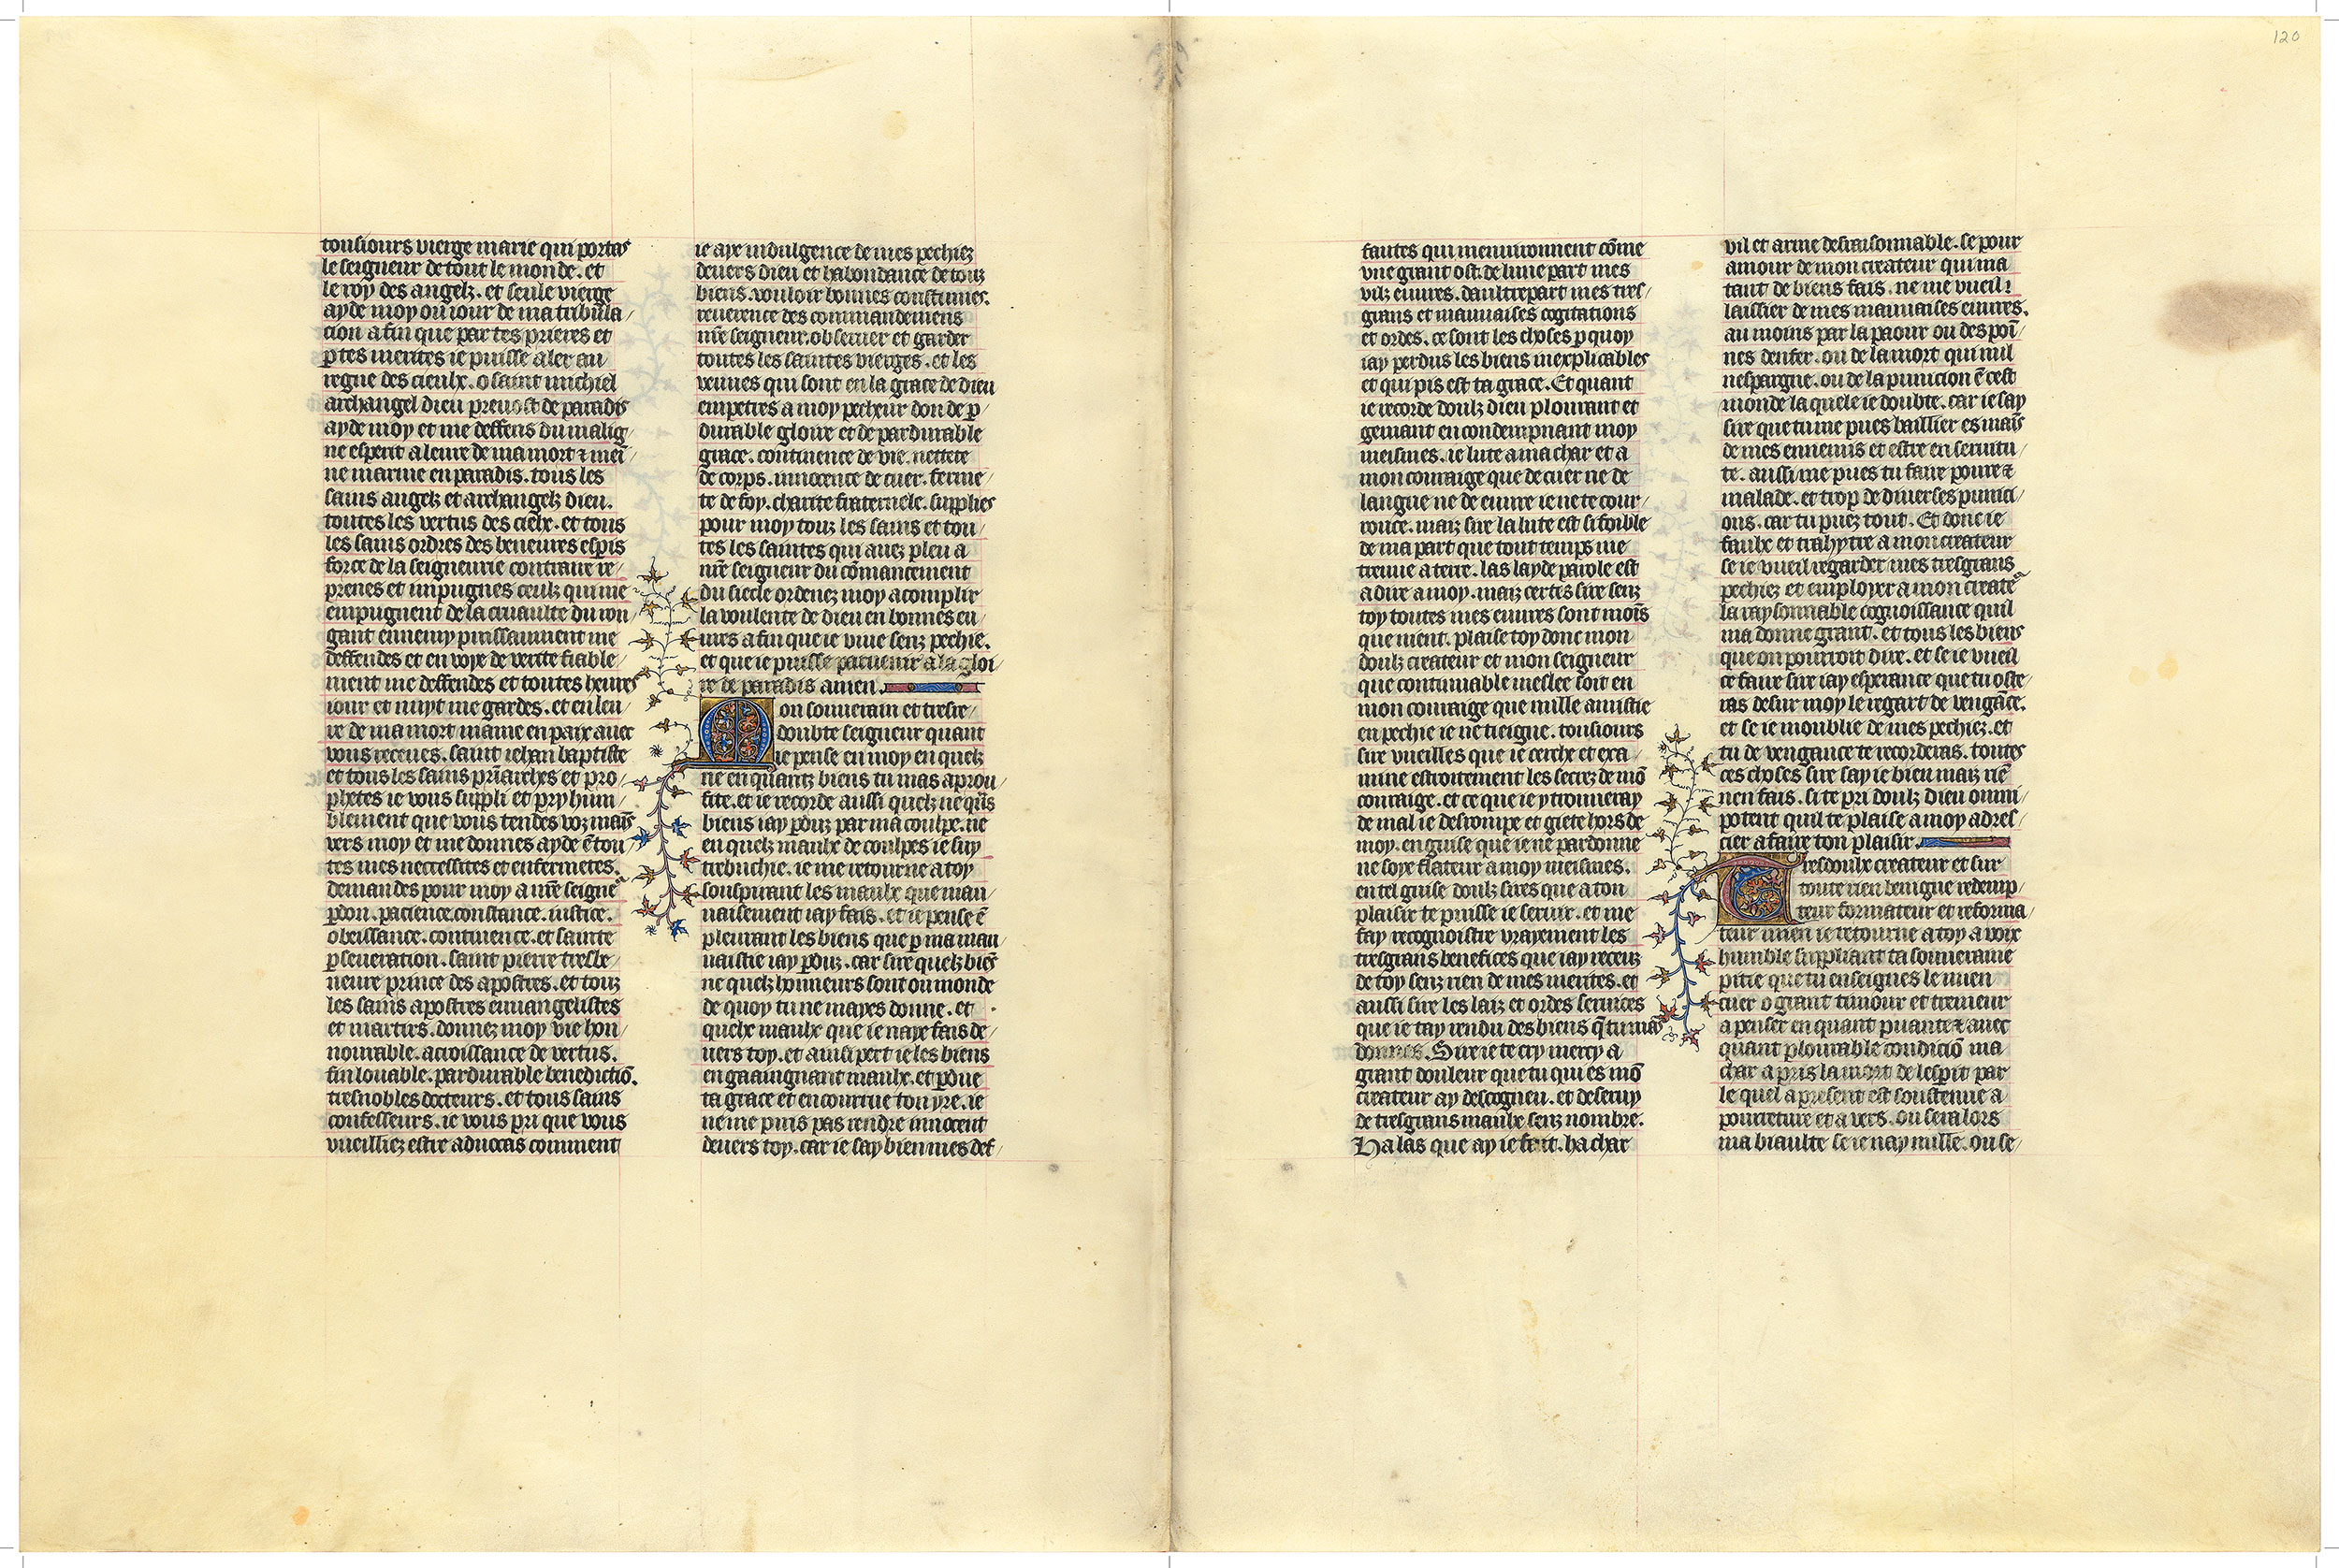 tousiours vierge marie qui portas
le seigneur de tout le monde. et
le roy des angelz. et seule vierge
ayde moy ou iour de ma tribula
cion a fin que par tes prieres et
p tes merites ie puisse aler au
regne des cieulx. o saint michiel
archangel dieu prevost de paradis
ayde moy et me deffens du malig
ne esperit a leure de ma mort ⁊ mei
ne marme en paradis. tous les
sains angelz et archangelz dieu.
toutes les vertus des cielx. et tous
les sains ordres des beneures espis
force de la seigneurie contraire re
prenes et impugnes ceulx qui me
empugnent de la cruaulte du ron
gant ennemy puissaument me
deffendes et en voye de verite fiable
ment me deffendes et toutes heures
iour et nuyt me gardes. et en leu
re de ma mort mame en paix avec
vous receues. saint iehan baptiste
et tous les sains priarches et pro
phetes ie vous suppli et pry hum
blement que vous tendes voz mais
vers moy et me donnes ayde e tou
tes mes necessites et enfermetes.
demandes pour moy a nre seigne
pdon. pacience. constance. iustice.
obeissance. continence. et sainte
pseueration. saint pierre tresbe
neure prince des apostres. et touz
les sains apostres euuangelistes
et martirs. donnez moy vie hon
nourable. acroissance de vertus.
fin louable. pardurable benedictio.
tresnobles docteurs. et tous sains
confesseurs. ie vous pri que vous
vueilliez estre aduocas comment
ie aye indulgence de mes pechiez
deuers dieu et habondance de touz
biens. vouloir bonnes constumes.
reuerence des commandemens
nre seigneur. obseruer et garder
toutes les saintes vierges. et les
veuues qui sont en la grace de dieu
empetres a moy pecheur don de p
durable gloire et de pardurable
grace. continence de vie. nettete
de corps. innocence de cuer. ferme
te de foy. charite fraternele. supplies
pour moy touz les sains et tou
tes les saintes qui auez pleu a
nre seigneur du comancement
du siecle ordenez moy acomplir
la voulente de dieu en bonnes eu
ures a fin que ie viue senz pechie.
et que ie puisse paruenir a la gloi
re de paradis amen.
Mon souuerain et tresre
doubte seigneur quant
ie pense en moy en quelz
ne en quantz biens tu mas aprou
fite. et ie recorde aussi quelz ne qns
biens iay pduz par ma coulpe. ne
en quelz maulx de coulpes ie suy
trebuchie. ie me retourne a toy
souspirant les maulx que mau
uaisement iay fais. et ie pense e
pleurant les biens que p ma mau
uaistie iay pduz. car sire quelz bies
ne quelz honneurs sont ou monde
de quoy tu ne mayes donne. et
quelx maulx que ie naye fais de
uers toy. et ainsi pert ie les biens
en gaaingnant maulx. et pdue
ta grace et encourue ton yre. ie
ne me puis pas rendre innocent
deuers toy. car ie say bien mes def
fautes qui menuironnent come
vne grant ost. de lune part mes
vilz euures. daultre part mes tres
grans et mauuaises cogitations
et ordes. ce sont les choses p quoy
iay perdus les biens inexplicables
et qui pis est ta grace. Et quant
ie recorde doulz dieu plourant et
gemant en condempnant moy
meismes. ie lute a ma char et a
mon couraige que de cuer ne de
langue ne de euure ie ne te cour
rouce. maiz sire la lute est si foible
de ma part que tout temps me
treuue a terre. las layde parole est
a dire a moy. maiz certes sire senz
toy toutes mes euures sont mois
que nient. plaise toy donc mon
doulz createur et mon seigneur
que continuable meslee soit en
mon couraige que mille amistie
en pechie ie ne tieigne. tousiours
sire vueilles que ie cerche et exa
mine estroitement les secrez de mo
couraige. et ce que ie y trouueray
de mal ie desrompe et giete hors de
moy. en guise que ie ne pardonne
ne soye flateur a moy meismes.
en tel guise doulz sires que a ton
plaisir te puisse ie seruir. et me
fay recognoistre vrayement les
tresgrans benefices que iay receuz
de toy senz rien de mes merites. et
aussi sire les laiz et ordes seruices
que ie tay rendu des biens q tu mas
donnes. Sire ie te cry mercy a
grant douleur que tu qui es mo
createur ay descogneu. et deseruy
de tresgrans maulx senz nombre.
Ha las que ay ie fait. ha char
vil et arme desraisonnable. se pour
amour de mon createur qui ma
tant de biens fais. ne me vueil
laissier de mes mauuaises euures.
au moins par la paour ou des poi
nes denfer. ou de la mort qui nul
nespargne. ou de la punicion e cest
monde la quele ie doubte. car ie say
sire que tu me pues baillier es mais
de mes ennemis et estre en seruitu
te. aussi me pues tu faire poure ⁊
malade. et trop de diuerses punici
ons. car tu puez tout. Et donc ie
faulx et trahytre a mon createur
se ie vueil regarder mes tresgrans
pechiez et employer a mon create
la raysonnable cognoissance quil
ma donne grant. et tous les biens
que on pourroit dire. et se ie vueil
ce faire sire iay esperance que tu oste
ras desur moy le regart de vengace.
et se ie moublie de mes pechiez. et
tu de vengance te recorderas. toutes
ces choses sire say ie bien maiz ne
nen fais. si te pri doulz dieu omni
potent quil te plaise a moy adres
cier a faire ton plaisir.
Tresdoulx createur et sur
toute rien benigne redemp
teur formateur et reforma
teur mien ie retourne a toy a voix
humble suppliant ta souueraine
pitie que tu enseignes le mien
cuer o grant timour et tremeur
a penser en quant puante ⁊ auec
quant plourable condicio ma
char apris la mort de lespit par
le quel a present est soustenue a
pourreture et a vers. ou sera lors
ma biaulte se ie nay nulle. ou se
120